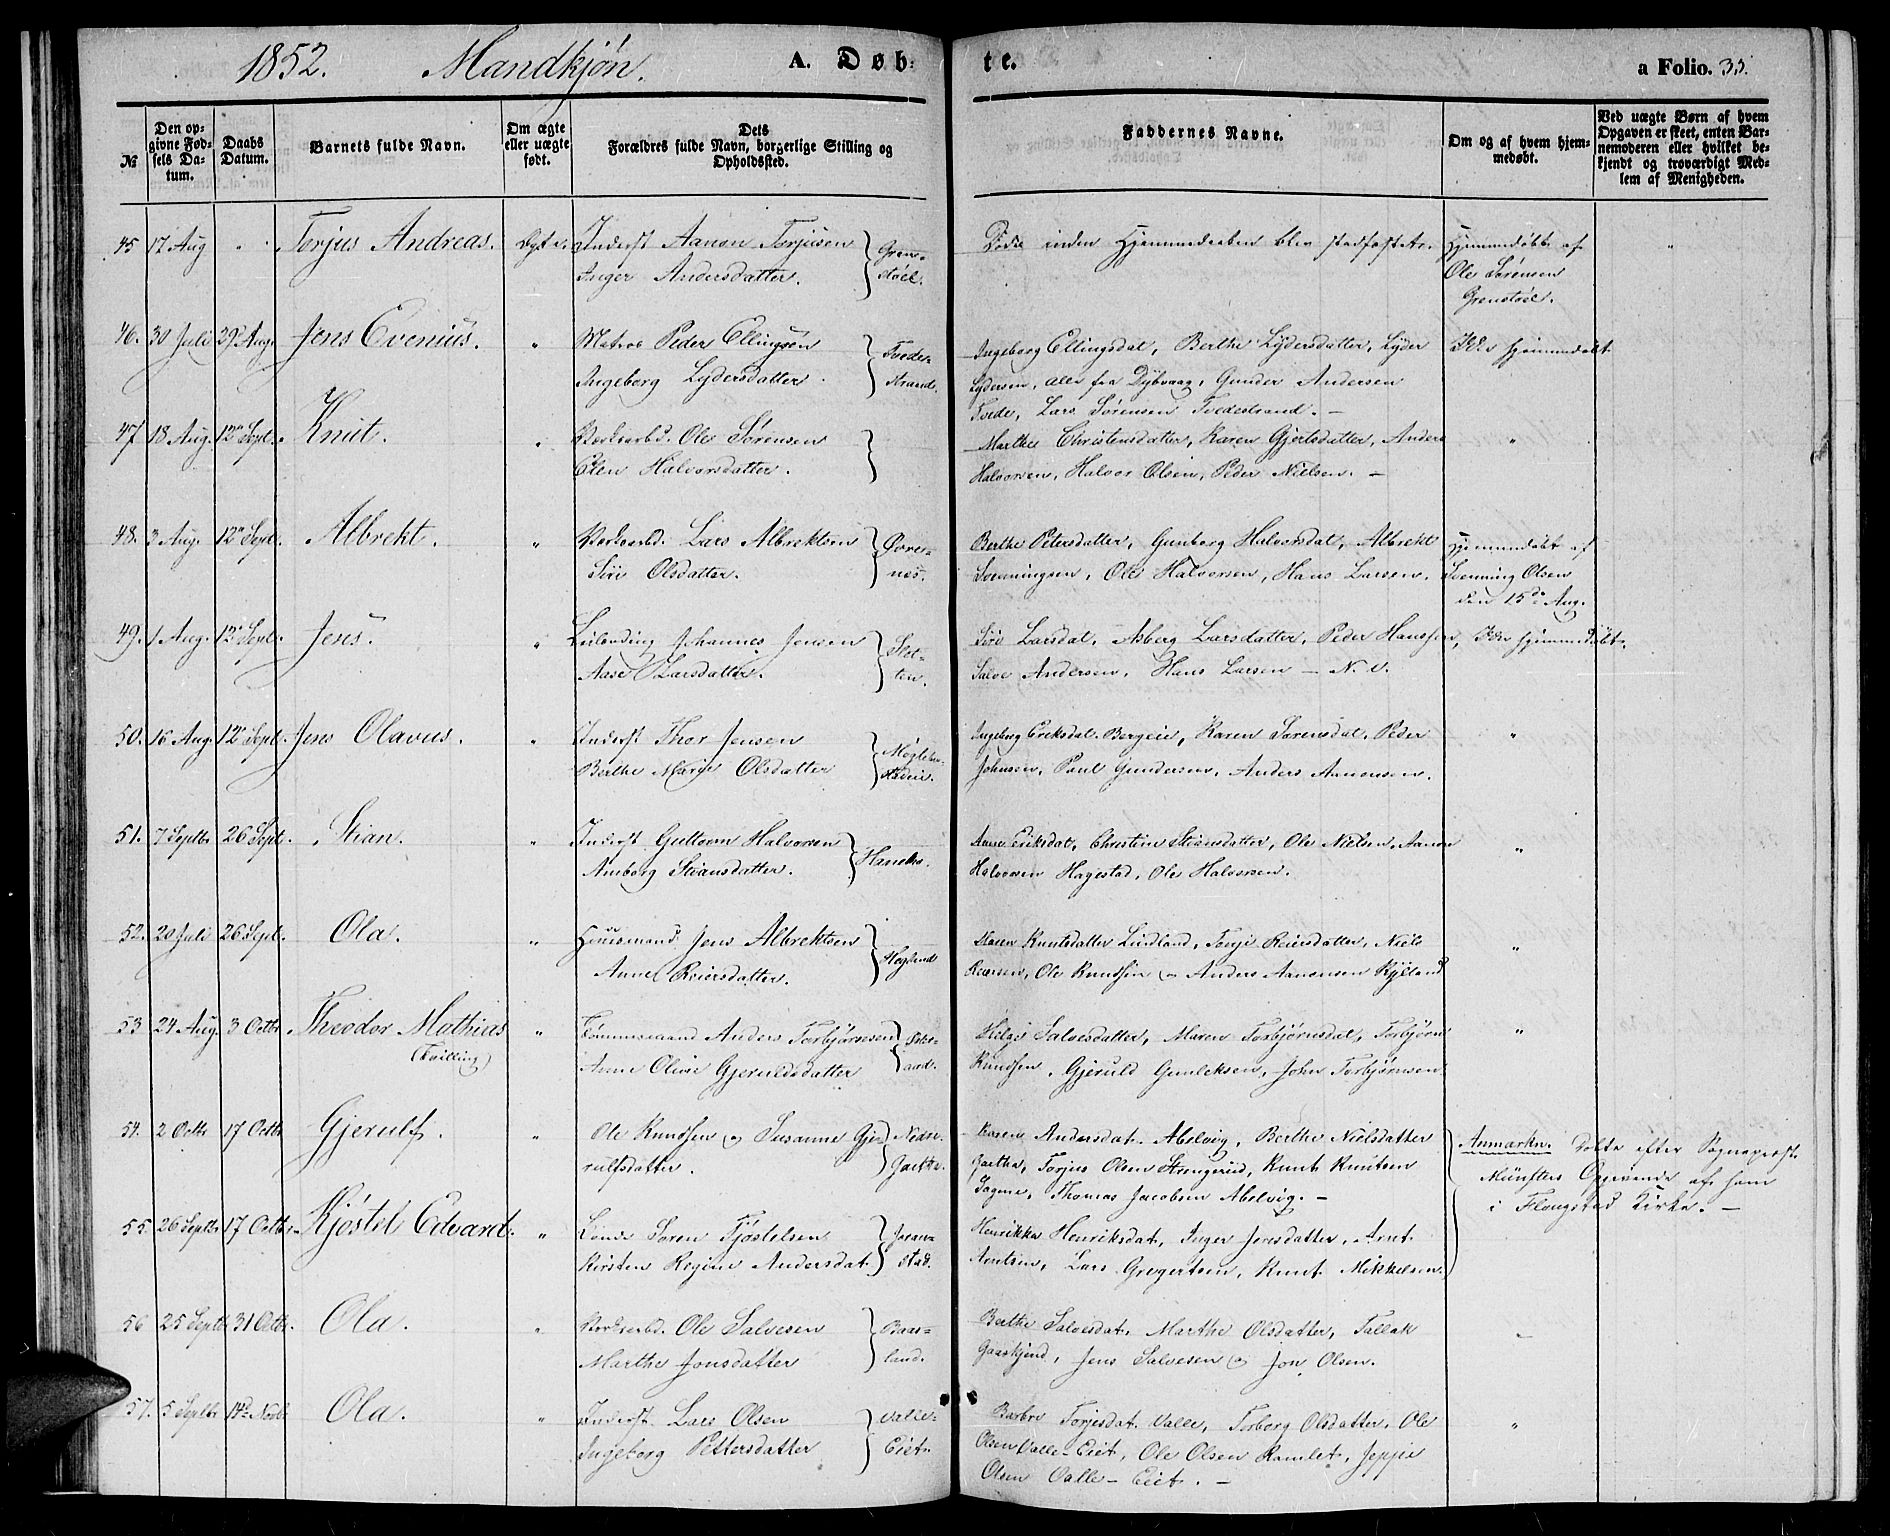 1852. Mandkjøn. A. Døb- te. a Folio. 33.
№
Den opgivne Fødsels Datum.
Daabs Datum.
Barnets fulde Navn.
Om ægte eller uægte født.
Dets Forældres fulde Navn, borgerlige Stilling og Opholdssted.
Faddernes Navne.
Om og af hvem hjemmedøbt.
Ved uægte Børn af hvem Opgaven er skeet, enten Barnemoderen eller hvilket bekjendt og troværdigt Medlem af Menigheden.
45 17 Aug " Torjus Andreas. Ægte Inderst Aanon Torjusen Gren- Døde inden Hjemmedaaben blev stadfæstet. Hjemmedøbt af
Inger Andersdatter. støel. Ole Sørensen
Grenstøel.
46. 30 Juli 29 Aug. Jens Evenius. " Matros Peder Ellingsen Tvede- Ingeborg Ellingsdat, Berthe Lydersdatter, Lyder Ikke hjemmedøbt
Ingeborg Lydersdatter. strand. Lydersen, alle fra Dybvaag, Gunder Andersen
Tvede, Lars Sørensen Tvedestrand. —
47 18 Aug. 12 Sept. Knut. " Værksarbd. Ole Sørensen Marthe Christensdatter, Karen Gjertsdatter, Anders "
Elen Halvorsdatter. Halvorsen, Halvor Olsen, Peder Nielsen. —
48. 3 Aug. 12 Sept. Albrekt. " Værksarbd. Lars Albrektsen Øvre- Berthe Petersdatter, Gunborg Halvorsdat, Albrekt Hjemmedøbt af
Siri Olsdatter. næs. Svenningsen, Ole Halvorsen, Hans Larsen. Svenning Olsen
den 15de Aug.
49. 1 Aug. 12 Sept. Jens. " Leilending Johannes Jensen Slet- Siri Larsdat, Asberg Larsdatter, Peder Hanssen, Ikke hjemmedøbt.
Aase Larsdatter. ten. Salve Andersen, Hans Larsen — N. v.
50. 16 Aug. 12 Sept. Jens Olavus. " Inderst Thor Jensen Ingeborg Eriksdat. Bergeie, Karen Sørensdat, Peder "
Berthe Marie Olsdatter Johnsen, Paul Gundersen, Anders Aanonsen.
51. 7 Septbr 26 Sept. Stian. " Inderst Guttorm Halvorsen Anne Eriksdat, Christine Stiansdatter, Ole Nielsen, Aanon "
Amborg Stiansdatter. Halvorsen Hagestad, Ole Halvorsen.
52. 20 Juli 26 Sept. Ola. " Huusmand Jens Albrektsen Høgland Maren Knutsdatter Lindland, Tonje Reiersdatter, Niels "
Anne Reiersdatter. Reiersen, Ole Knudsen og Anders Aanonsen Ryland
53 24 Aug. 3 Octbr. Theodor Mathias " Tømmermand Anders Torbjørnsen Helge Salvesdatter, Maren Torbjørnsdat, Torbjørn "
(Tvilling) Anne Olive Gjeruldsdatter Knudsen, Gjeruld Gunleksen, John Torbjørnsen
54. 2 Octbr 17 Octbr Gjerulf. " Ole Knudsen og Susanne Gje- Neder- Karen Andersdat. Abelvig, Berthe Nielsdatter Anmærkn. Døbte efter Sognepræst
rulfsdatter. Gjethe, Torjus Olsen Strengereid, Knut Knutsen Münsters Opgivende af ham
Songne, Thomas Jacobsen Abelvig. — i Flougstad Kirke. —
55. 26 Septbr. 17 Octbr. Kjøstel Edvard. " Søren Tjøstelsen Joran- Henrikke Henriksdat, Inger Jensdatter, Arnt
Kirsten Regine Andersdat. stad. Arntsen, Lars Gregertsen, Knut Mikkelsen.
56 25 Septbr 31 Octbr. Ola. " Værksarbd. Ole Salvesen Baas- Berthe Salvesdat. Marthe Olsdatter, Tallak "
Marthe Jonsdatter land. Gaaskjend, Jens Salvesen og Jon Olsen.
57. 5 Septbr 14de Novbr. Ola. " Inderst Lars Olsen Valle- Barbro Torjesdat. Valle, Torborg Olsdatter, Ole "
Ingeborg Pettersdatter Eiet. Olsen Valle-Eiet, Ole Olsen Ramlet, Jeppe
Olsen Valle-Eiet. —